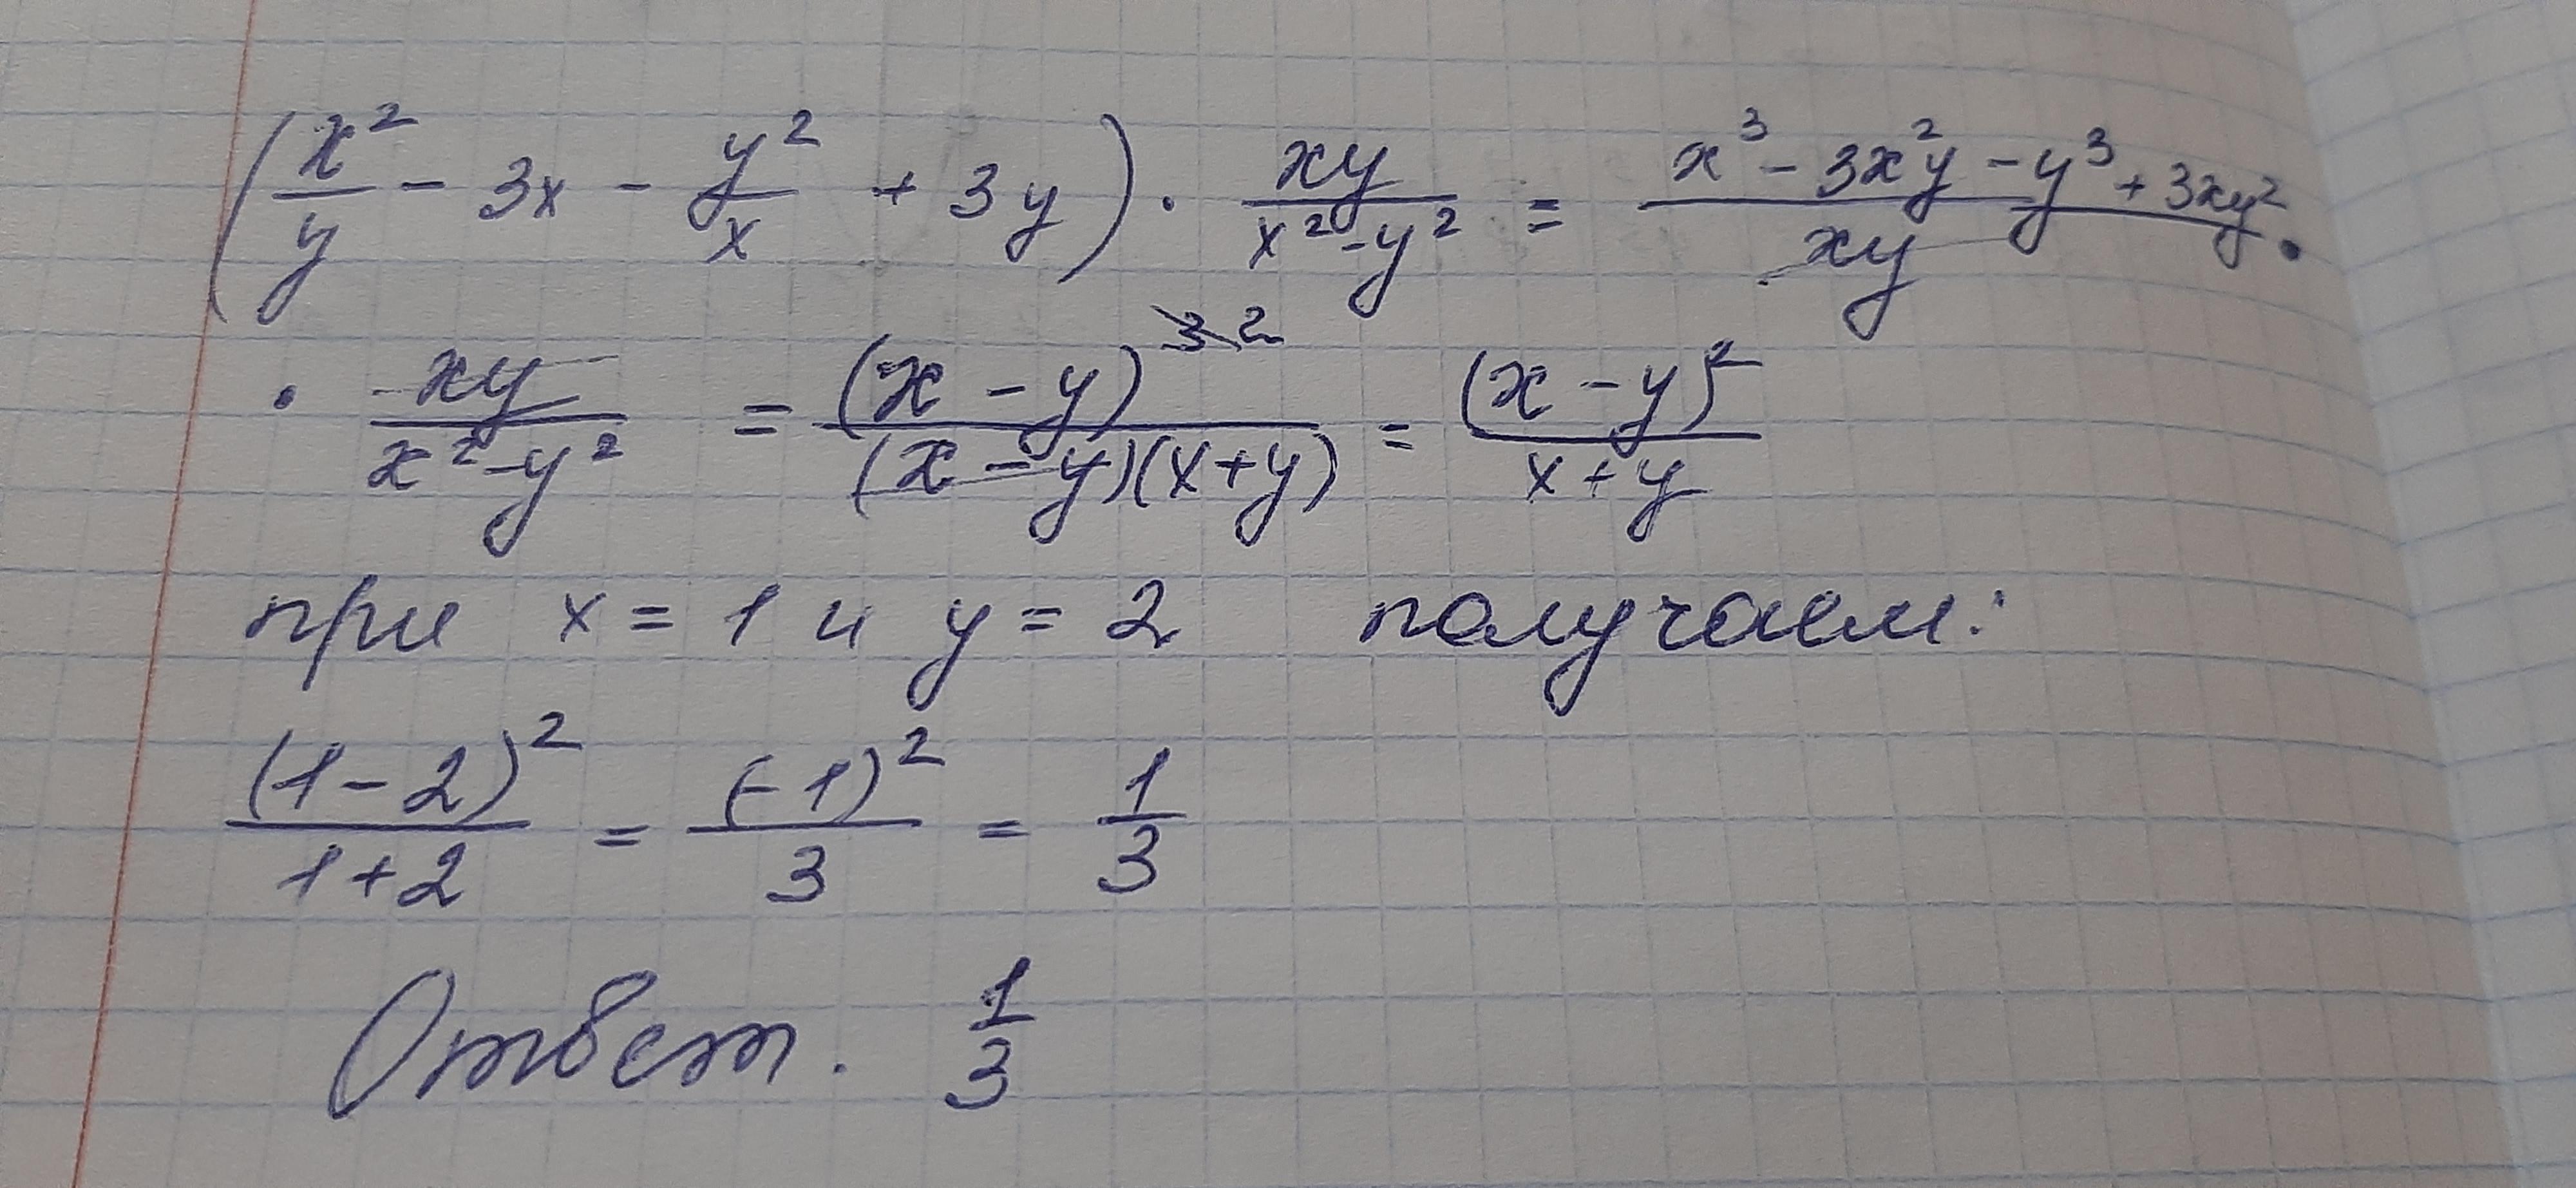 (x²/y - 3x - y²/x + 3y) · xy/(x²-y²) = (x³ - 3x²y - y³ + 3xy²)/xy ·
· xy/(x²-y²) = (x - y)^3 2/((x - y)(x+y)) = (x - y)²/(x+y)
при x = 1 и y = 2 получаем:
(1-2)²/(1+2) = (-1)²/3 = 1/3
Ответ. 1/3